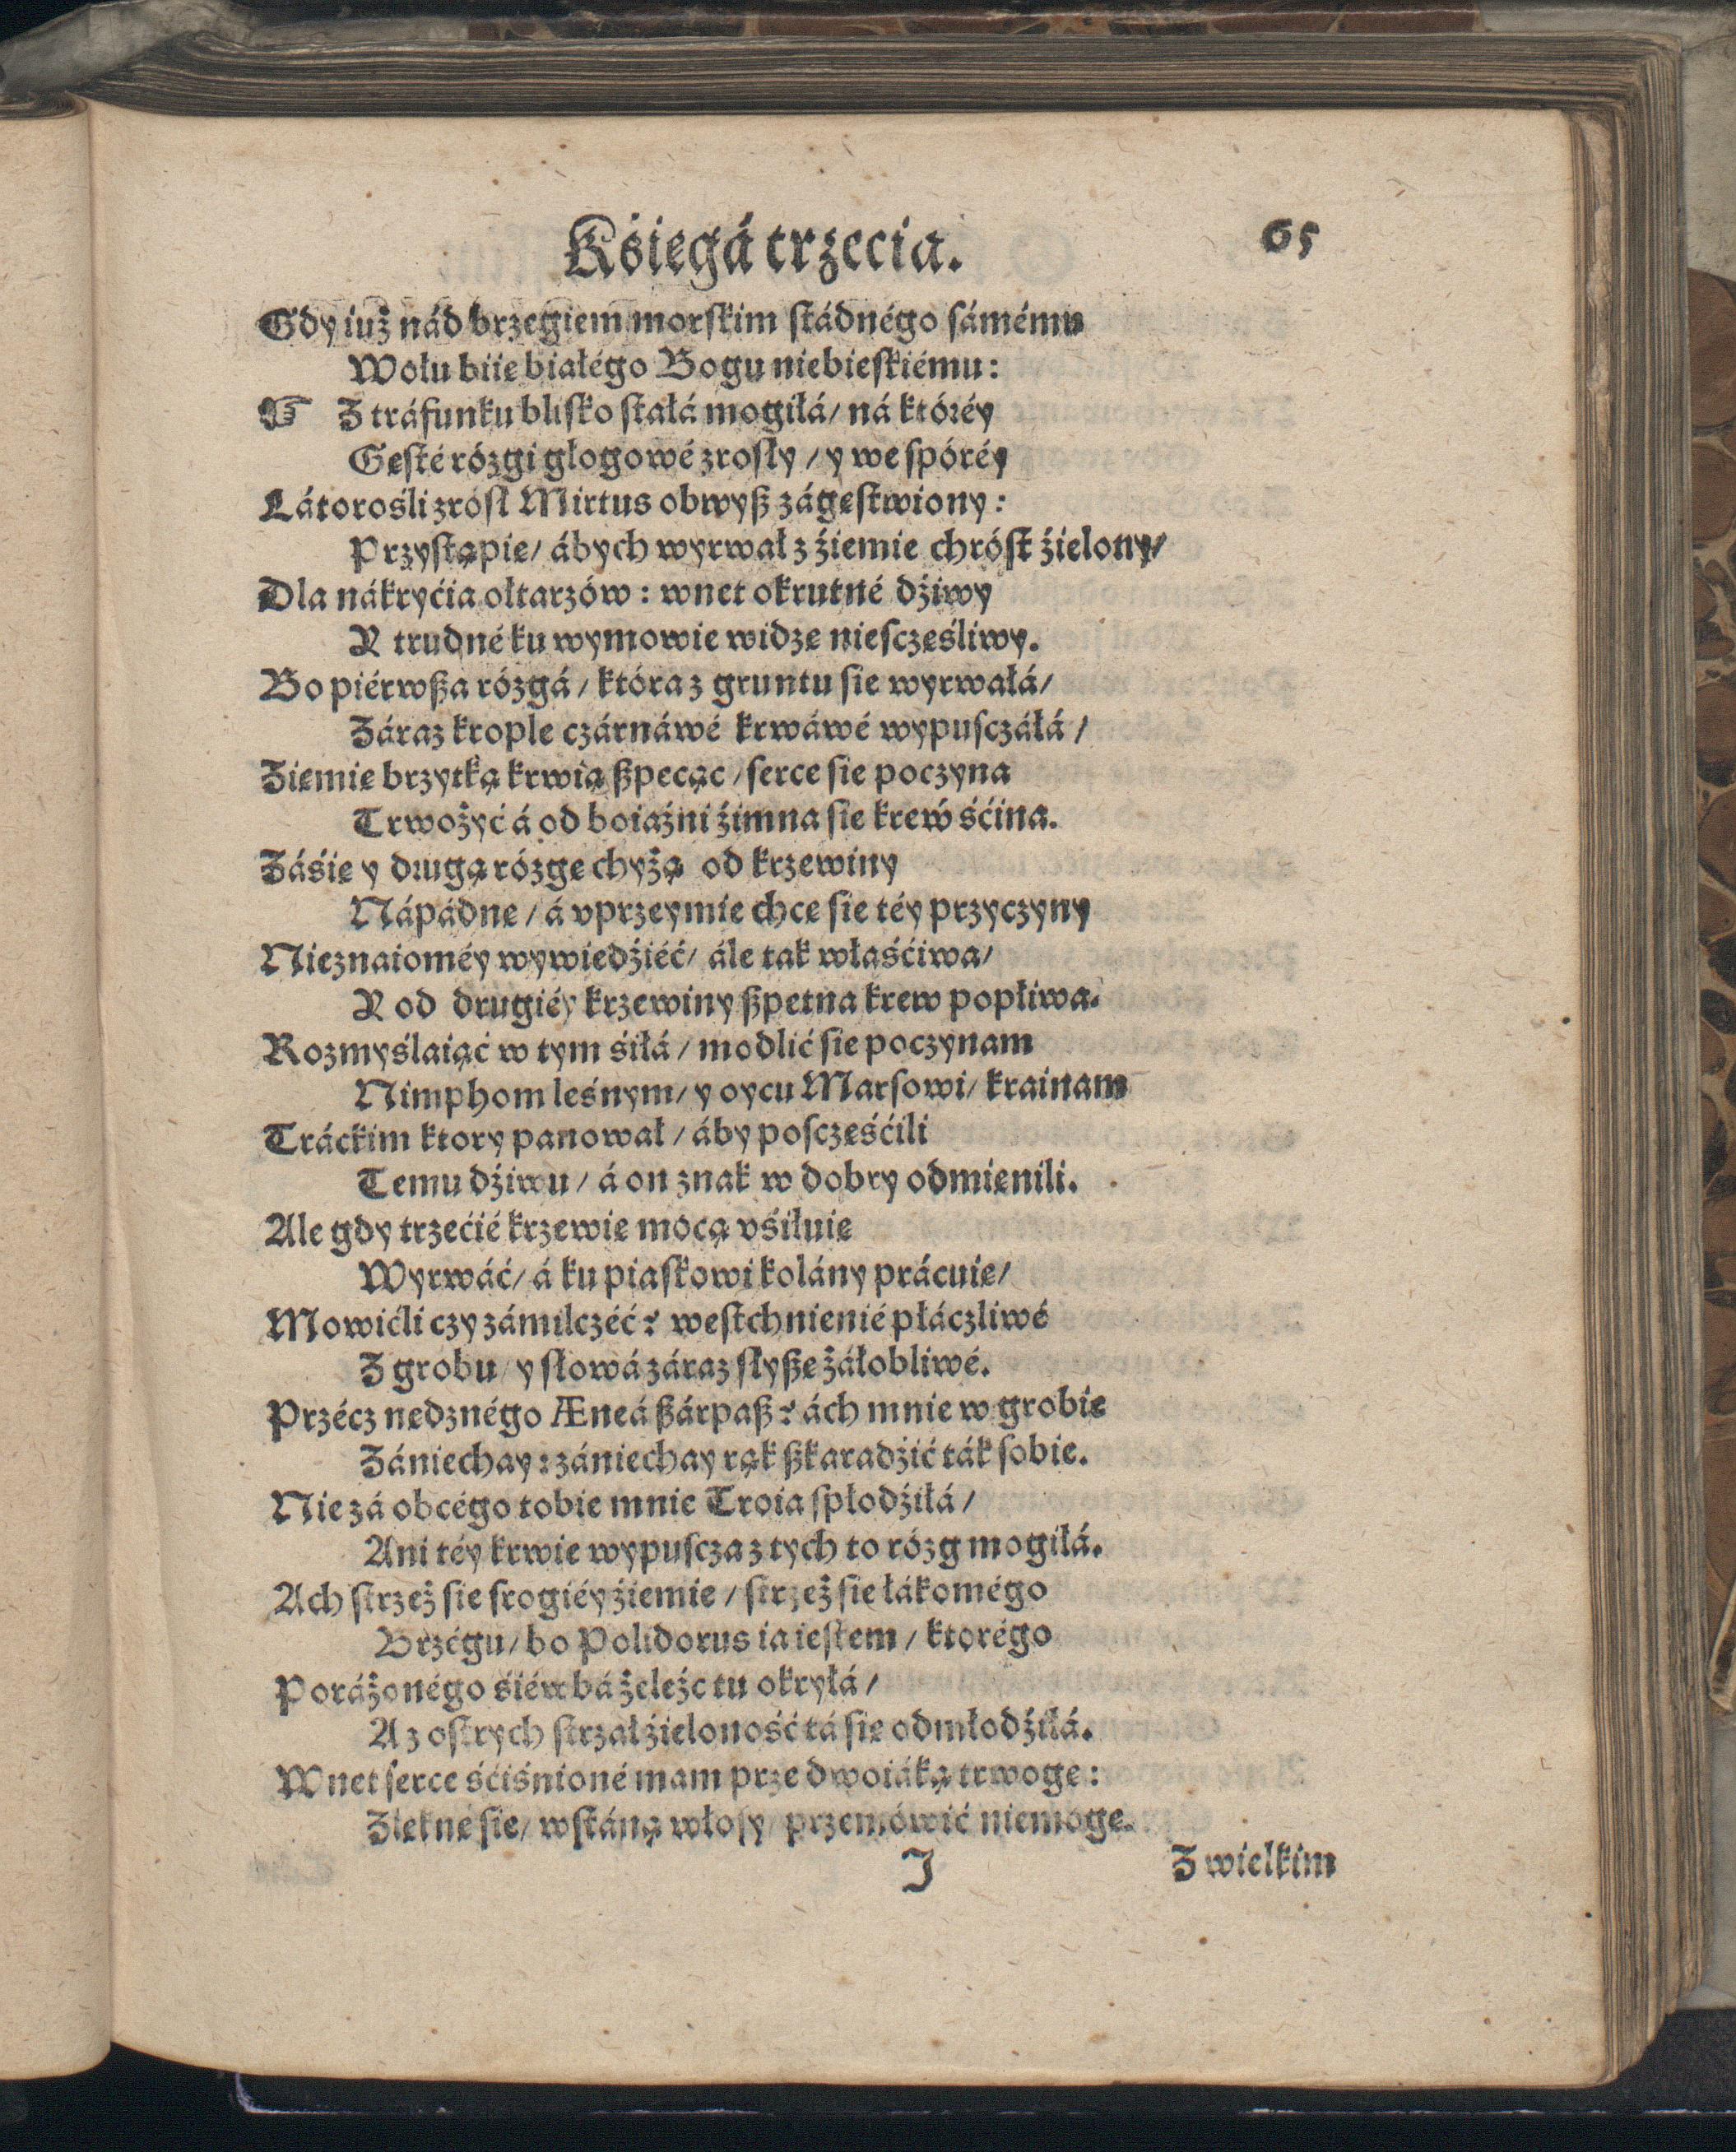 Kśięgá trzecia.
65
Gdy iuż nád brzegiem morskim stádnégo sámému
Wołu biię białégo Bogu niebieskiému:
☞ Z tráfunku blisko stałá mogiłá/ ná któréy
Gęsté rózgi głogowé zrosły / y we spóréy
Látorośli zrósł Mirtus obwyß zágęstwiony:
Przystąpię/ ábych wyrwał z źiemie chróst źielony/
Dla nákryćia ołtarzów: wnet okrutné dźiwy
Y trudné ku wymowie widzę niesczęśliwy.
Bo piérwßa rózgá / któraz gruntu sie wyrwáłá/
Záraz krople czárnáwé krwáwé wypusczáłá /
Ziemie brzytką krwią ßpecąc / serce sie poczyna
Trwożyć á od boiaźni źimna sie krew śćina.
Záśię y drugą rózgę chyżą od krzewiny
Nápádnę / á vprzeymie chcę sie téy przyczyny
Nieznaioméy wywiedźiéć/ ále tak właśćiwa/
Y od drugiéy krzewiny ßpetna krew popłiwa.
Rozmyślaiąć w tym śiłá / modlić sie poczynam
Nimphom leśnym/ y oycu Marsowi/ krainam
Tráckim ktory panował / áby posczęśćili
Temu dźiwu / á on znak w dobry odmienili.
Ale gdy trzećié krzewie mocą vśiłuię
Wyrwáć/ á ku piaskowi kolány prácuię/
Mowićli czy zámilczéć? westchnienié płáczliwé
Z grobu/ y słowá záraz słyßę żáłobliwé.
Przécz nędznégo Æneá ßárpaß? ách mnie w grobie
Zániechay: zániechay rąk ßkaradźić ták sobie.
Nie zá obcégo tobie mnie Troia spłodźiłá /
Ani téy krwie wypuscza z tych to rózg mogiłá.
Ach strzeż sie srogiéy źiemie / strzeż sie łákomégo
Brzégu/ bo Polidorus ia iestem / ktorégo
Porażonégo śiéwbá żeleźc tu okryłá /
A z ostrych strzał źieloność tá sie odmłodźiłá.
Wnet serce śćiśnioné mam prze dwoiáką trwogę:
Zlęknę sie/ wstáną włosy/ przemówić niemogę.
I
Z wielkim